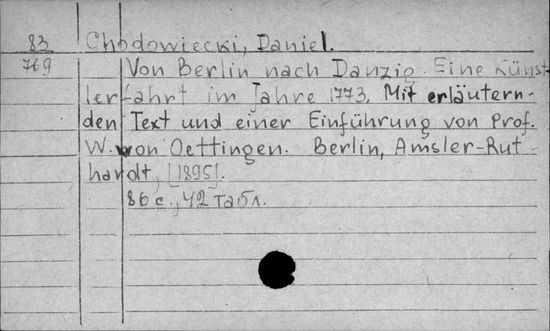 83 Chodowiecki, Daniel.
769 Von Berlin nach Danzig. Eine Künst-
lerfahrt im Jahre 1773. Mit erläutern-
den Text und einer Einführung von Prof.
W. von Oettingen. Berlin, Amsler-Rut-
hardt, [1895].
86 с., 42 табл.